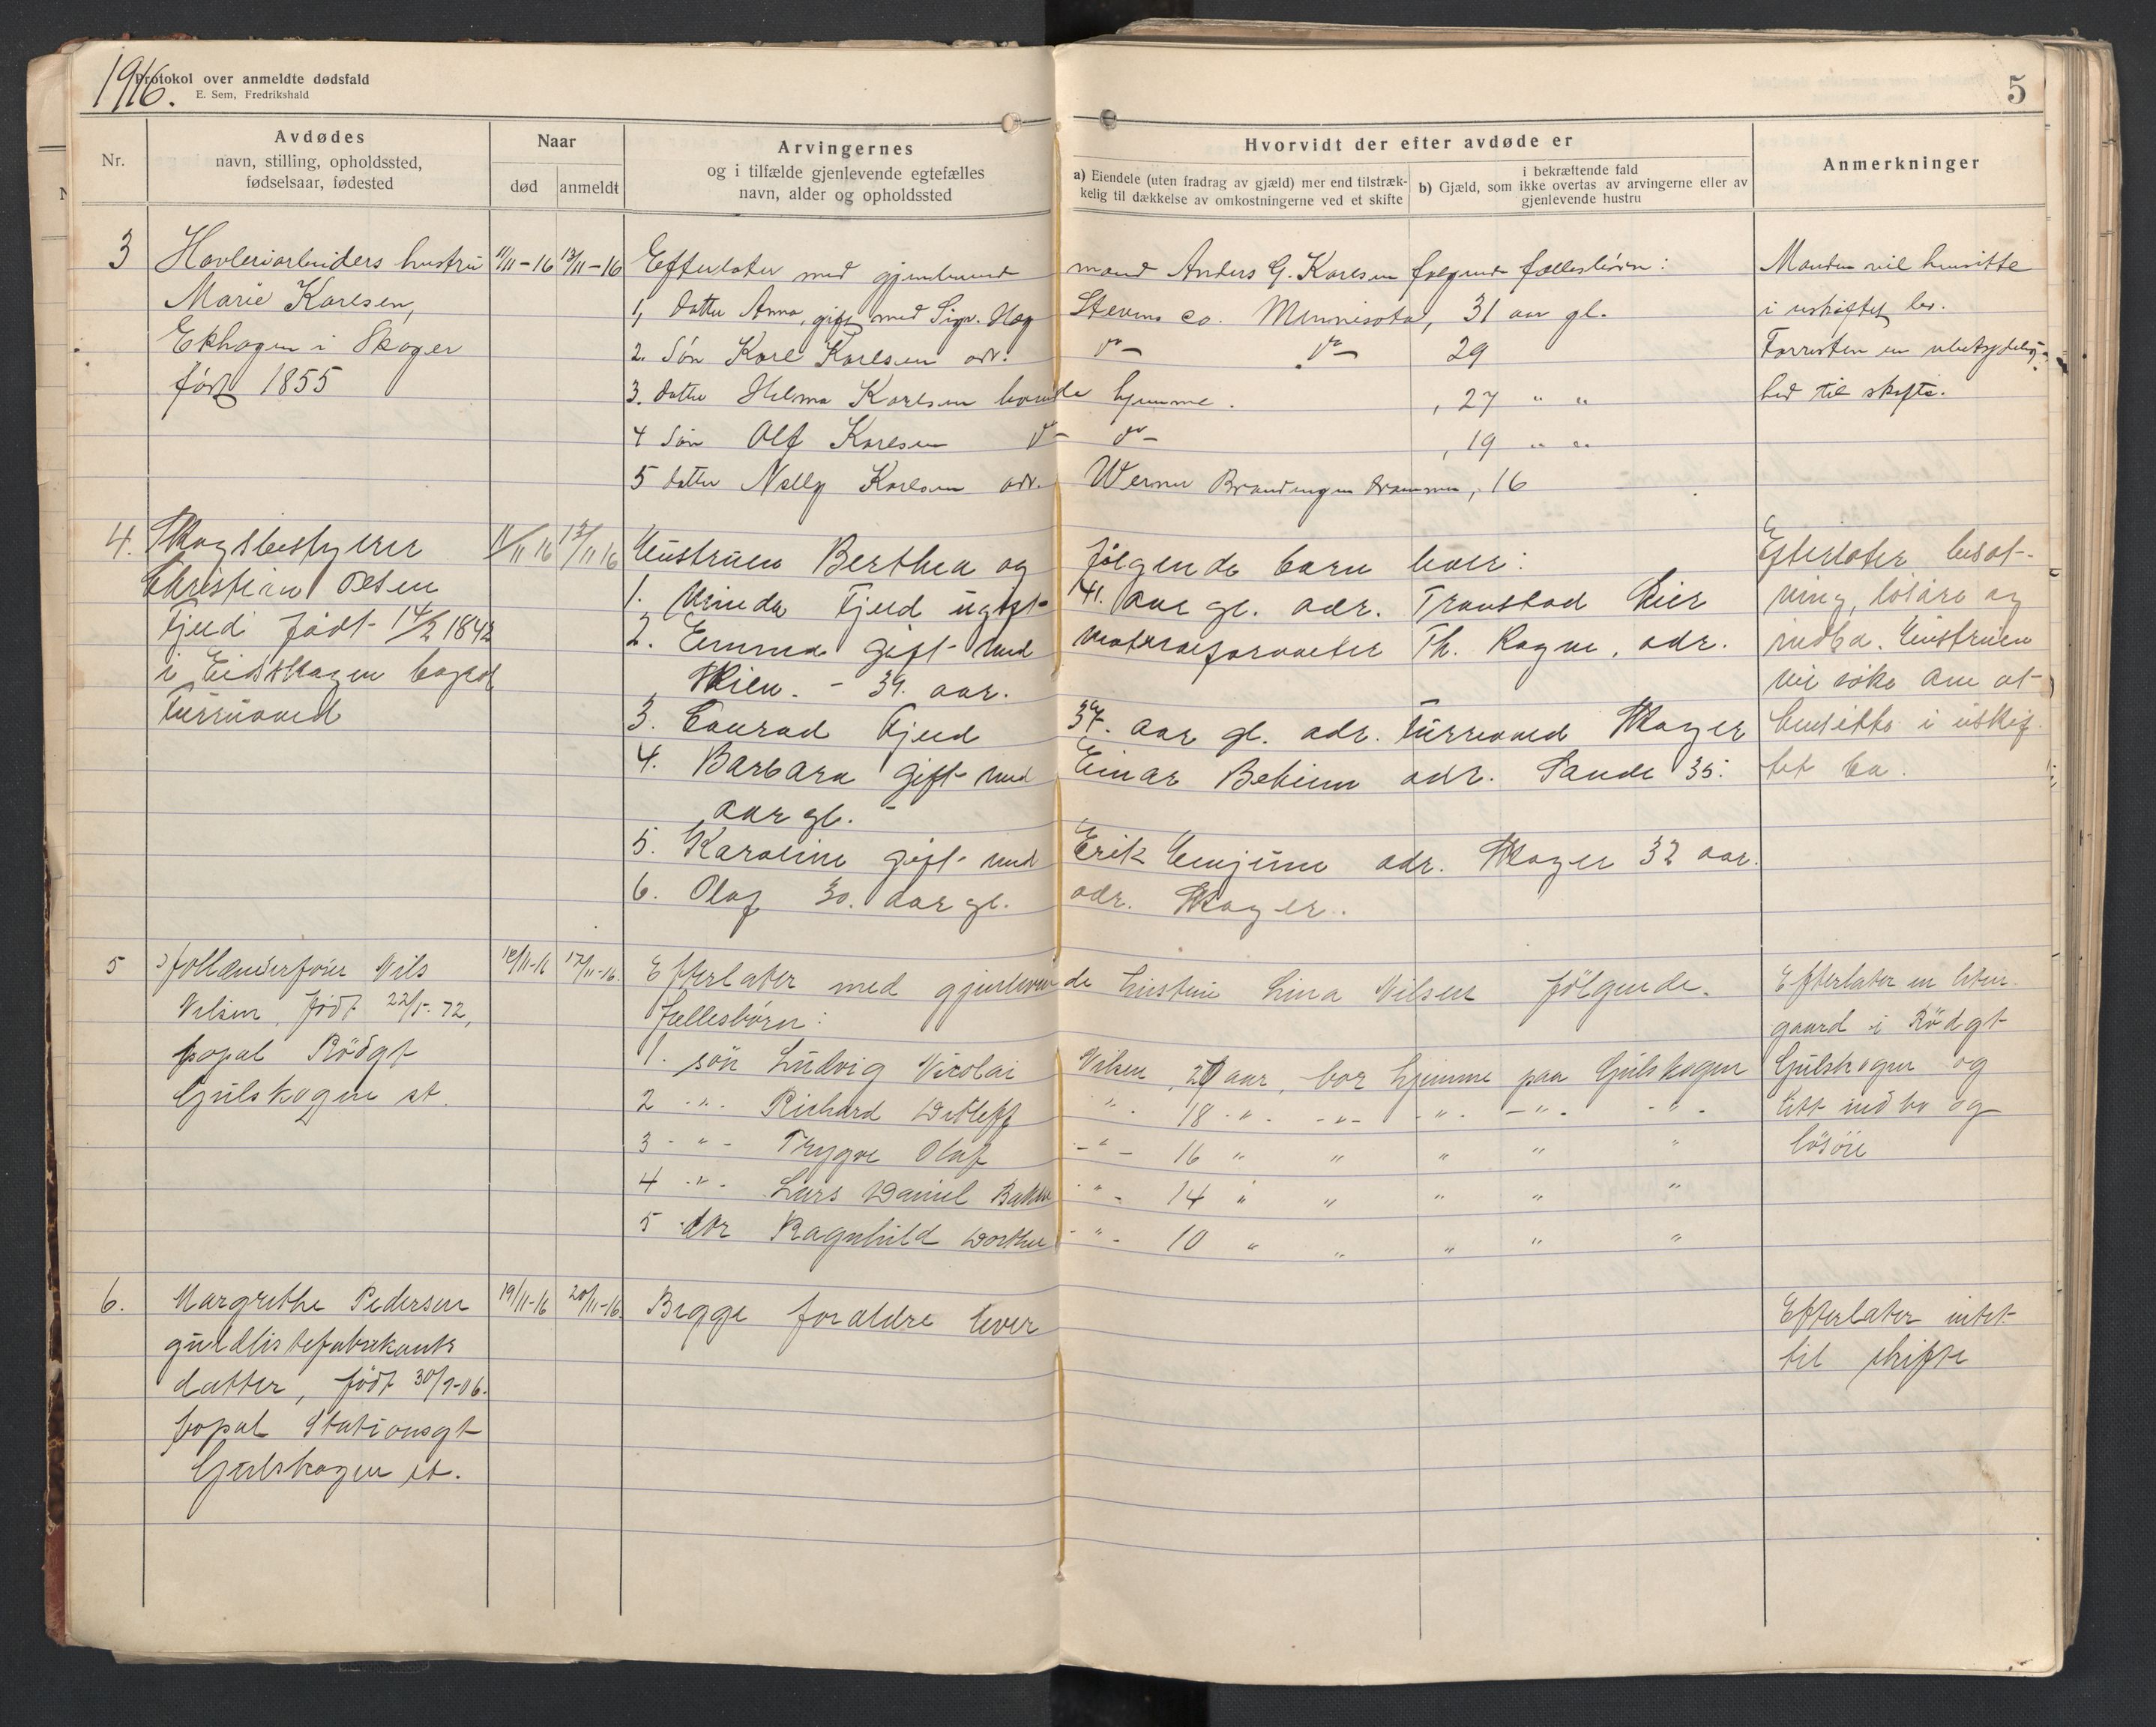 1916.
Protokol over anmeldte dødsfald
E. Sem, Fredrikshald
5
Nr.
Avdødes
navn, stilling, opholdssted,
fødselsaar, fødested
Naar
død
anmeldt
Arvingernes
og i tilfælde gjenlevende egtefælles
navn, alder og opholdssted
Hvorvidt der efter avdøde er
a) Eiendele (uten fradrag av gjæld) mer end tilstræk-
kelig til dækkelse av omkostningerne ved et skifte
i bekræftende fald
b) Gjæld, som ikke overtas av arvingerne eller av
gjenlevende hustru
Anmerkninger
3
Høvleriarbeiders hustru
Marie Karlsen,
Ekhagen i Skoger
født 1855
11/11-16
13/11-16
Efterlater med gjenlevende mand Anders G. Karlsen følgende fællesbörn:
1, datter Anna, gift med Sigv. Hag Stevens co. Minnisota, 31 aar gl.
2. Søn Karl Karlsen adr. do do 29
3. datter Helma Karlsen hjemme, 27 " "
4 Søn Olf Karlsen do do, 19 " "
5 datter Nelly Karlsen adr. Werner Drammen, 16
Manden vil hensitte
i uskiftet bo.
til skifte.
4.
Skogsbestyrer
Christian Olsen
Fjeld født 14/2 1842
i Eidskogen bopæl
11/11 16
13/11 16
Hustruen Berthea og følgende barn lever:
1. Minda Fjeld ugift 41. aar gl. adr. Transtad Lier
2. Emma gift med adr.
Wien. - 39. aar.
3. Conrad Fjeld 37. aar gl. adr. Skoger
4. Barbara gift med Einar adr. Sande 35.
aar gl. -
5. Karoline gift med Erik adr. Skoger 32 aar.
6. Olaf 30. aar gl. adr. Skoger.
Efterlater besæt-
ning, løsøre og
indbo. Hustruen
vil søke om at
hensitte i uskif-
tet bo.
5
Nils
Nilsen, født 22/5-72,
bopæl Rödgt
Gulskogen st.
12/11-16
17/11-16.
Efterlater med gjenlevende hustru Lina Nilsen følgende
fællesbörn:
1. sön Ludvig Nicolai Nilsen, 20 aar, bor hjemme paa Gulskogen
2 -"- Richard Detleff -"- 18 -"- -"- -"- -"- -"-
3 -"- Trygve Olaf -"- 16 " " " " "
4 -"- Lars Daniel -"- 14 " " " " "
5 dtr Ragnhild Dorthea -"- 10 " " " " "
Efterlater en liten
gaard i Rödgt
Gulskogen og
litt indbo og
løsöre
6.
Margrethe Pedersen
guldlistefabrikants
datter, født 30/9-06.
bopæl Stationsgt
Gulskogen st.
19/11-16
20/11-16.
Begge foræeldre lever
Efterlater intet
til skifte